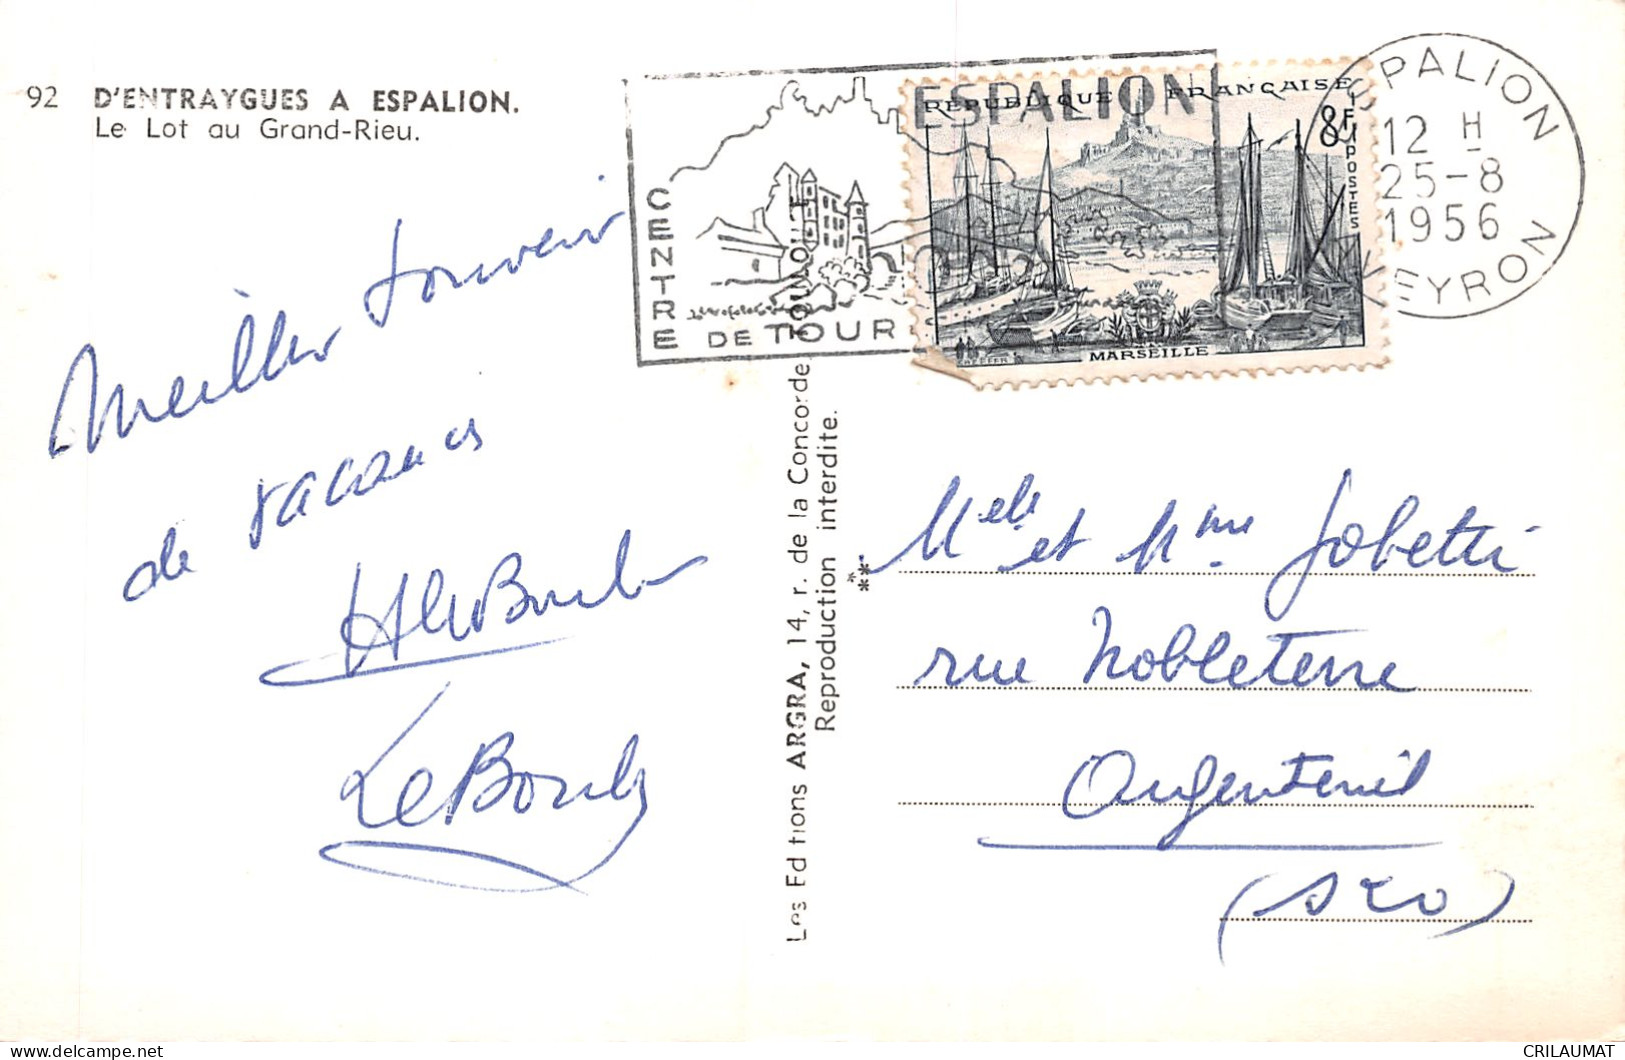 92 D'ENTRAYGUES A ESPALION.
Le Lot au Grand-Rieu.
Meilleur souvenir
de vacances
Le Boul
ESPALION
CENTRE
DE TOUR
REPUBLIQUE FRANÇAISE
8F
POSTES
MARSEILLE
ESPALION
12 H
25-8
1956
AVEYRON
Les Editions ARGRA, 14, r. de la Concorde
TOULOUSE
Reproduction interdite.
Melle et Mme Gobetti
rue Nobleterre
Argenteuil
(S&O)
CRILAUMAT